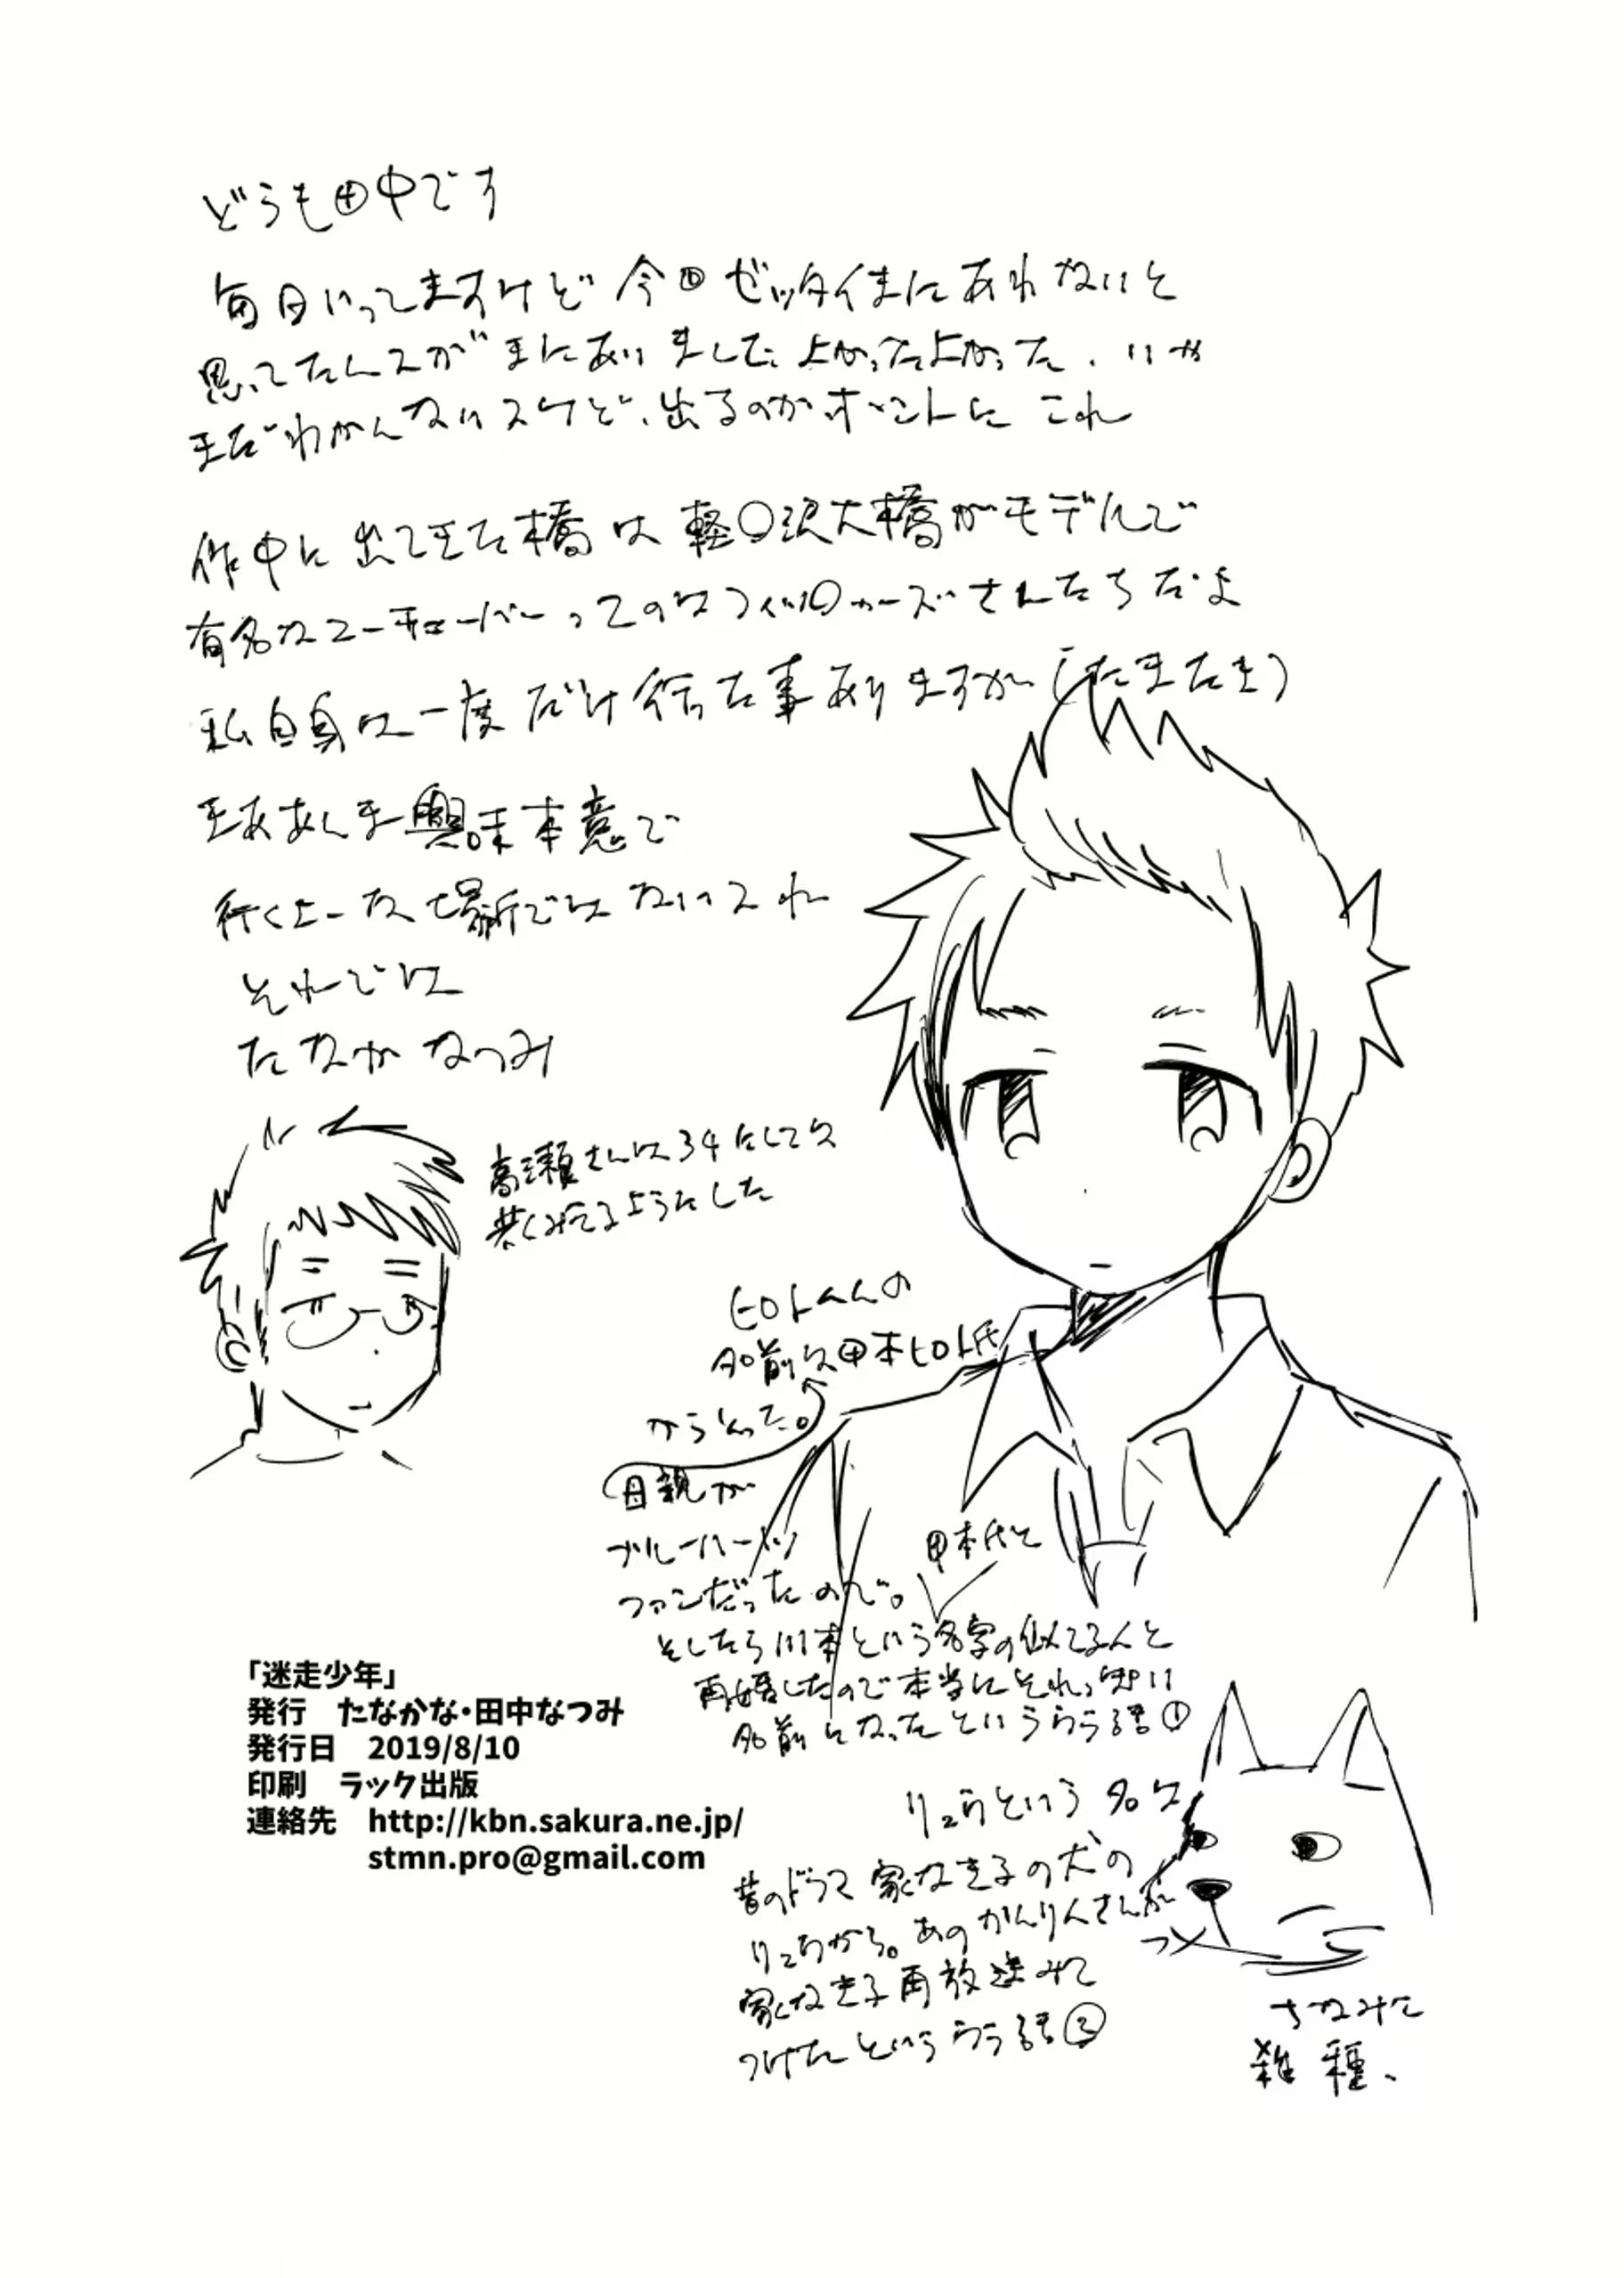 どうも田中です
毎日いってますけど今回ゼッタイまにあわないと
思ってたんスがまにあいました、よかったよかった、いや
まだわかんないスけど、出るのかホントに これ
作中に出てきた橋は軽〇沢大橋がモデルで
有名なユーチューバーってのはフィッ〇カーズさんたちだよ
私自身は一度だけ行った事ありますが(たまたま)
まああんま興味本意で
行くよーな場所ではないスね
それでは
たなかなつみ
高瀬さんは34にしては
若くみえるようにした
ヒロトくんの
名前は甲本ヒロト氏
からとった。
母親が
ブルーハーツ
ファンだったので。
甲本氏と
そしたら川本という名字の似てる人と
再婚したので本当にそれっぽい
名前になったというウラ話①
リュウという名は
昔のドラマ家なき子の犬の
リュウから。あのかんりんさんが
家なき子再放送みて
つけたというウラ話②
ちなみに
雑種、
「迷走少年」
発行 たなかな・田中なつみ
発行日 2019/8/10
印刷 ラック出版
連絡先 http://kbn.sakura.ne.jp/
stmn.pro@gmail.com